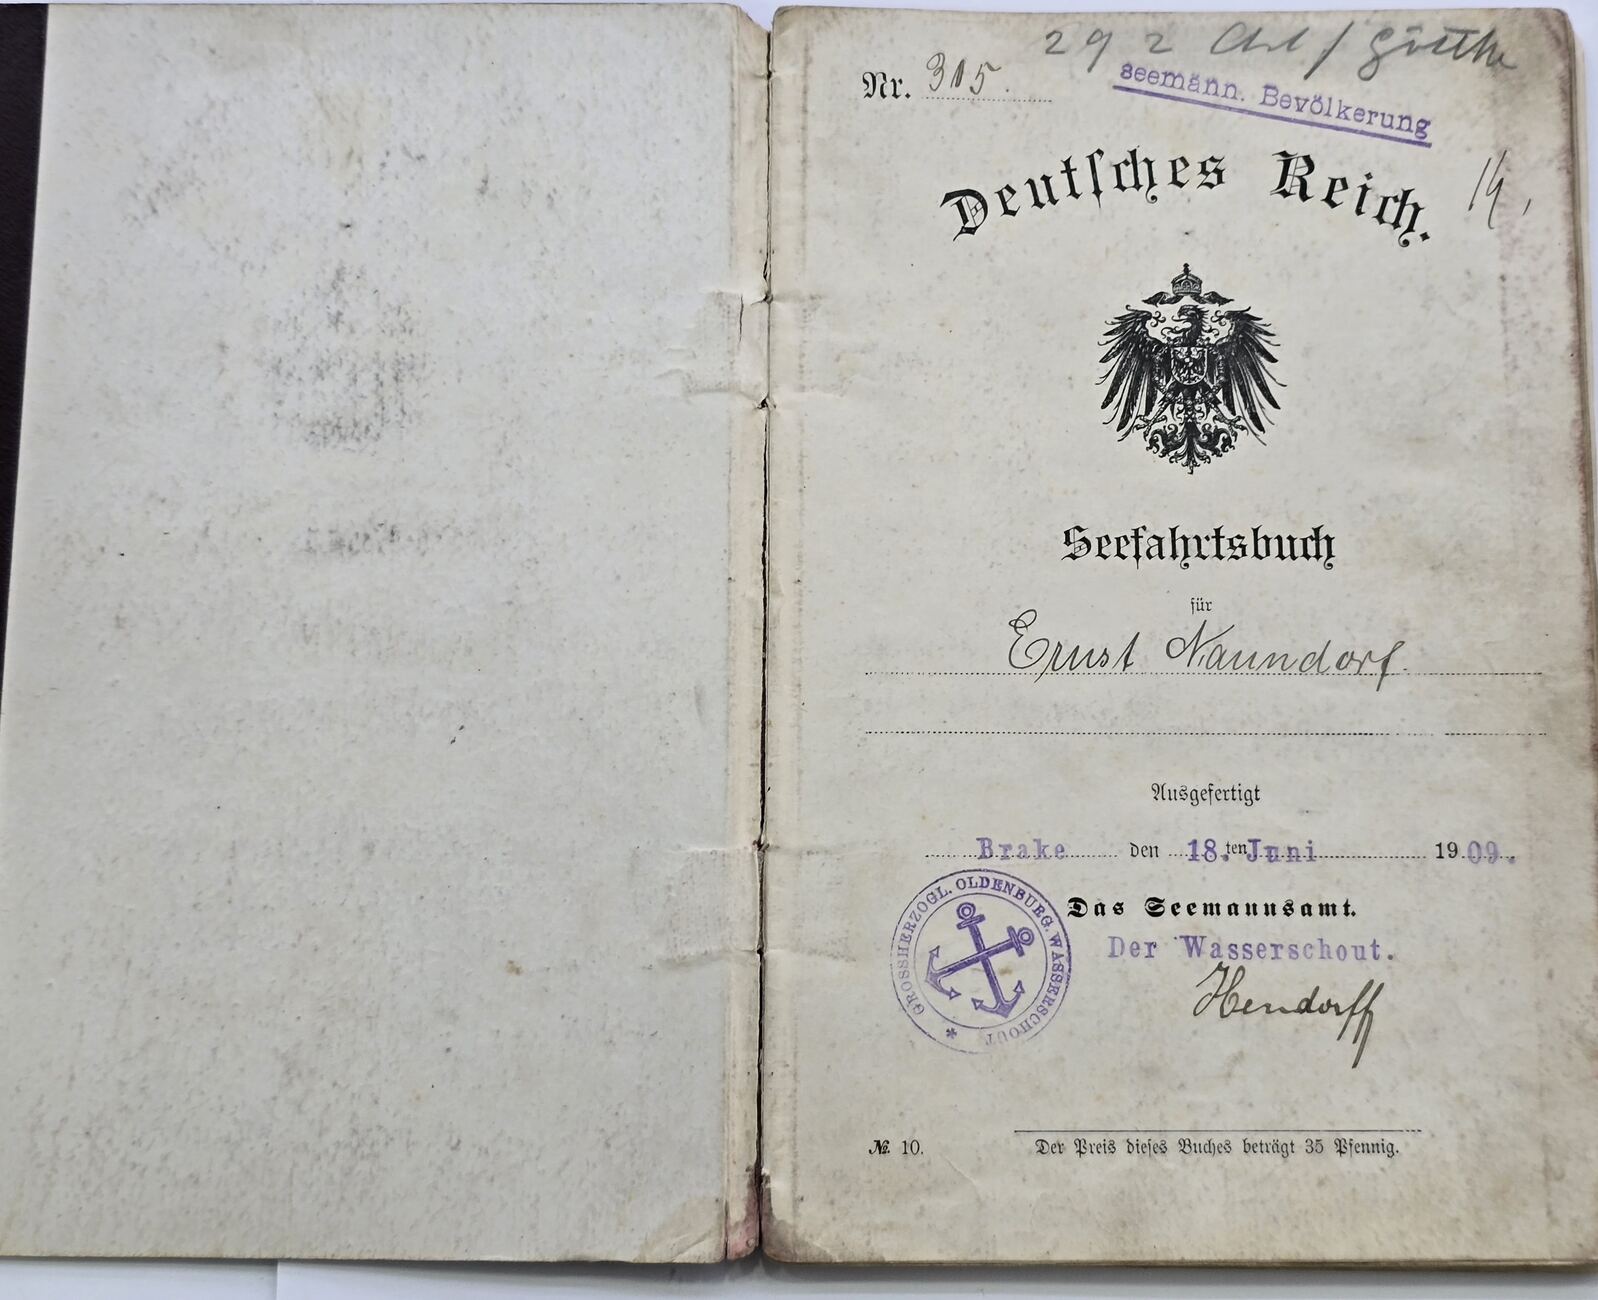 29 2
Nr. 305.
seemänn. Bevölkerung
Deutsches Reich.
Seefahrtsbuch
für
Ernst Naundorf.
Ausgefertigt
Brake den 18.ten Juni 1909.
Das Seemannsamt.
Der Wasserschout.
Hendorff
GROSSHERZOGL. OLDENBURG. WASSERSCHOUT *
№ 10. Der Preis dieses Buches beträgt 35 Pfennig.